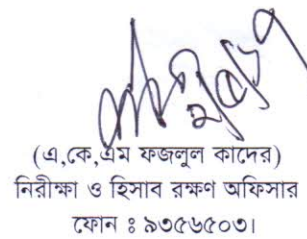 (এ,কে,এম ফজলুল কাদের)
নিরীক্ষা ও হিসাব রক্ষণ অফিসার
ফোন ঃ ৯৩৫৬৫০৩।